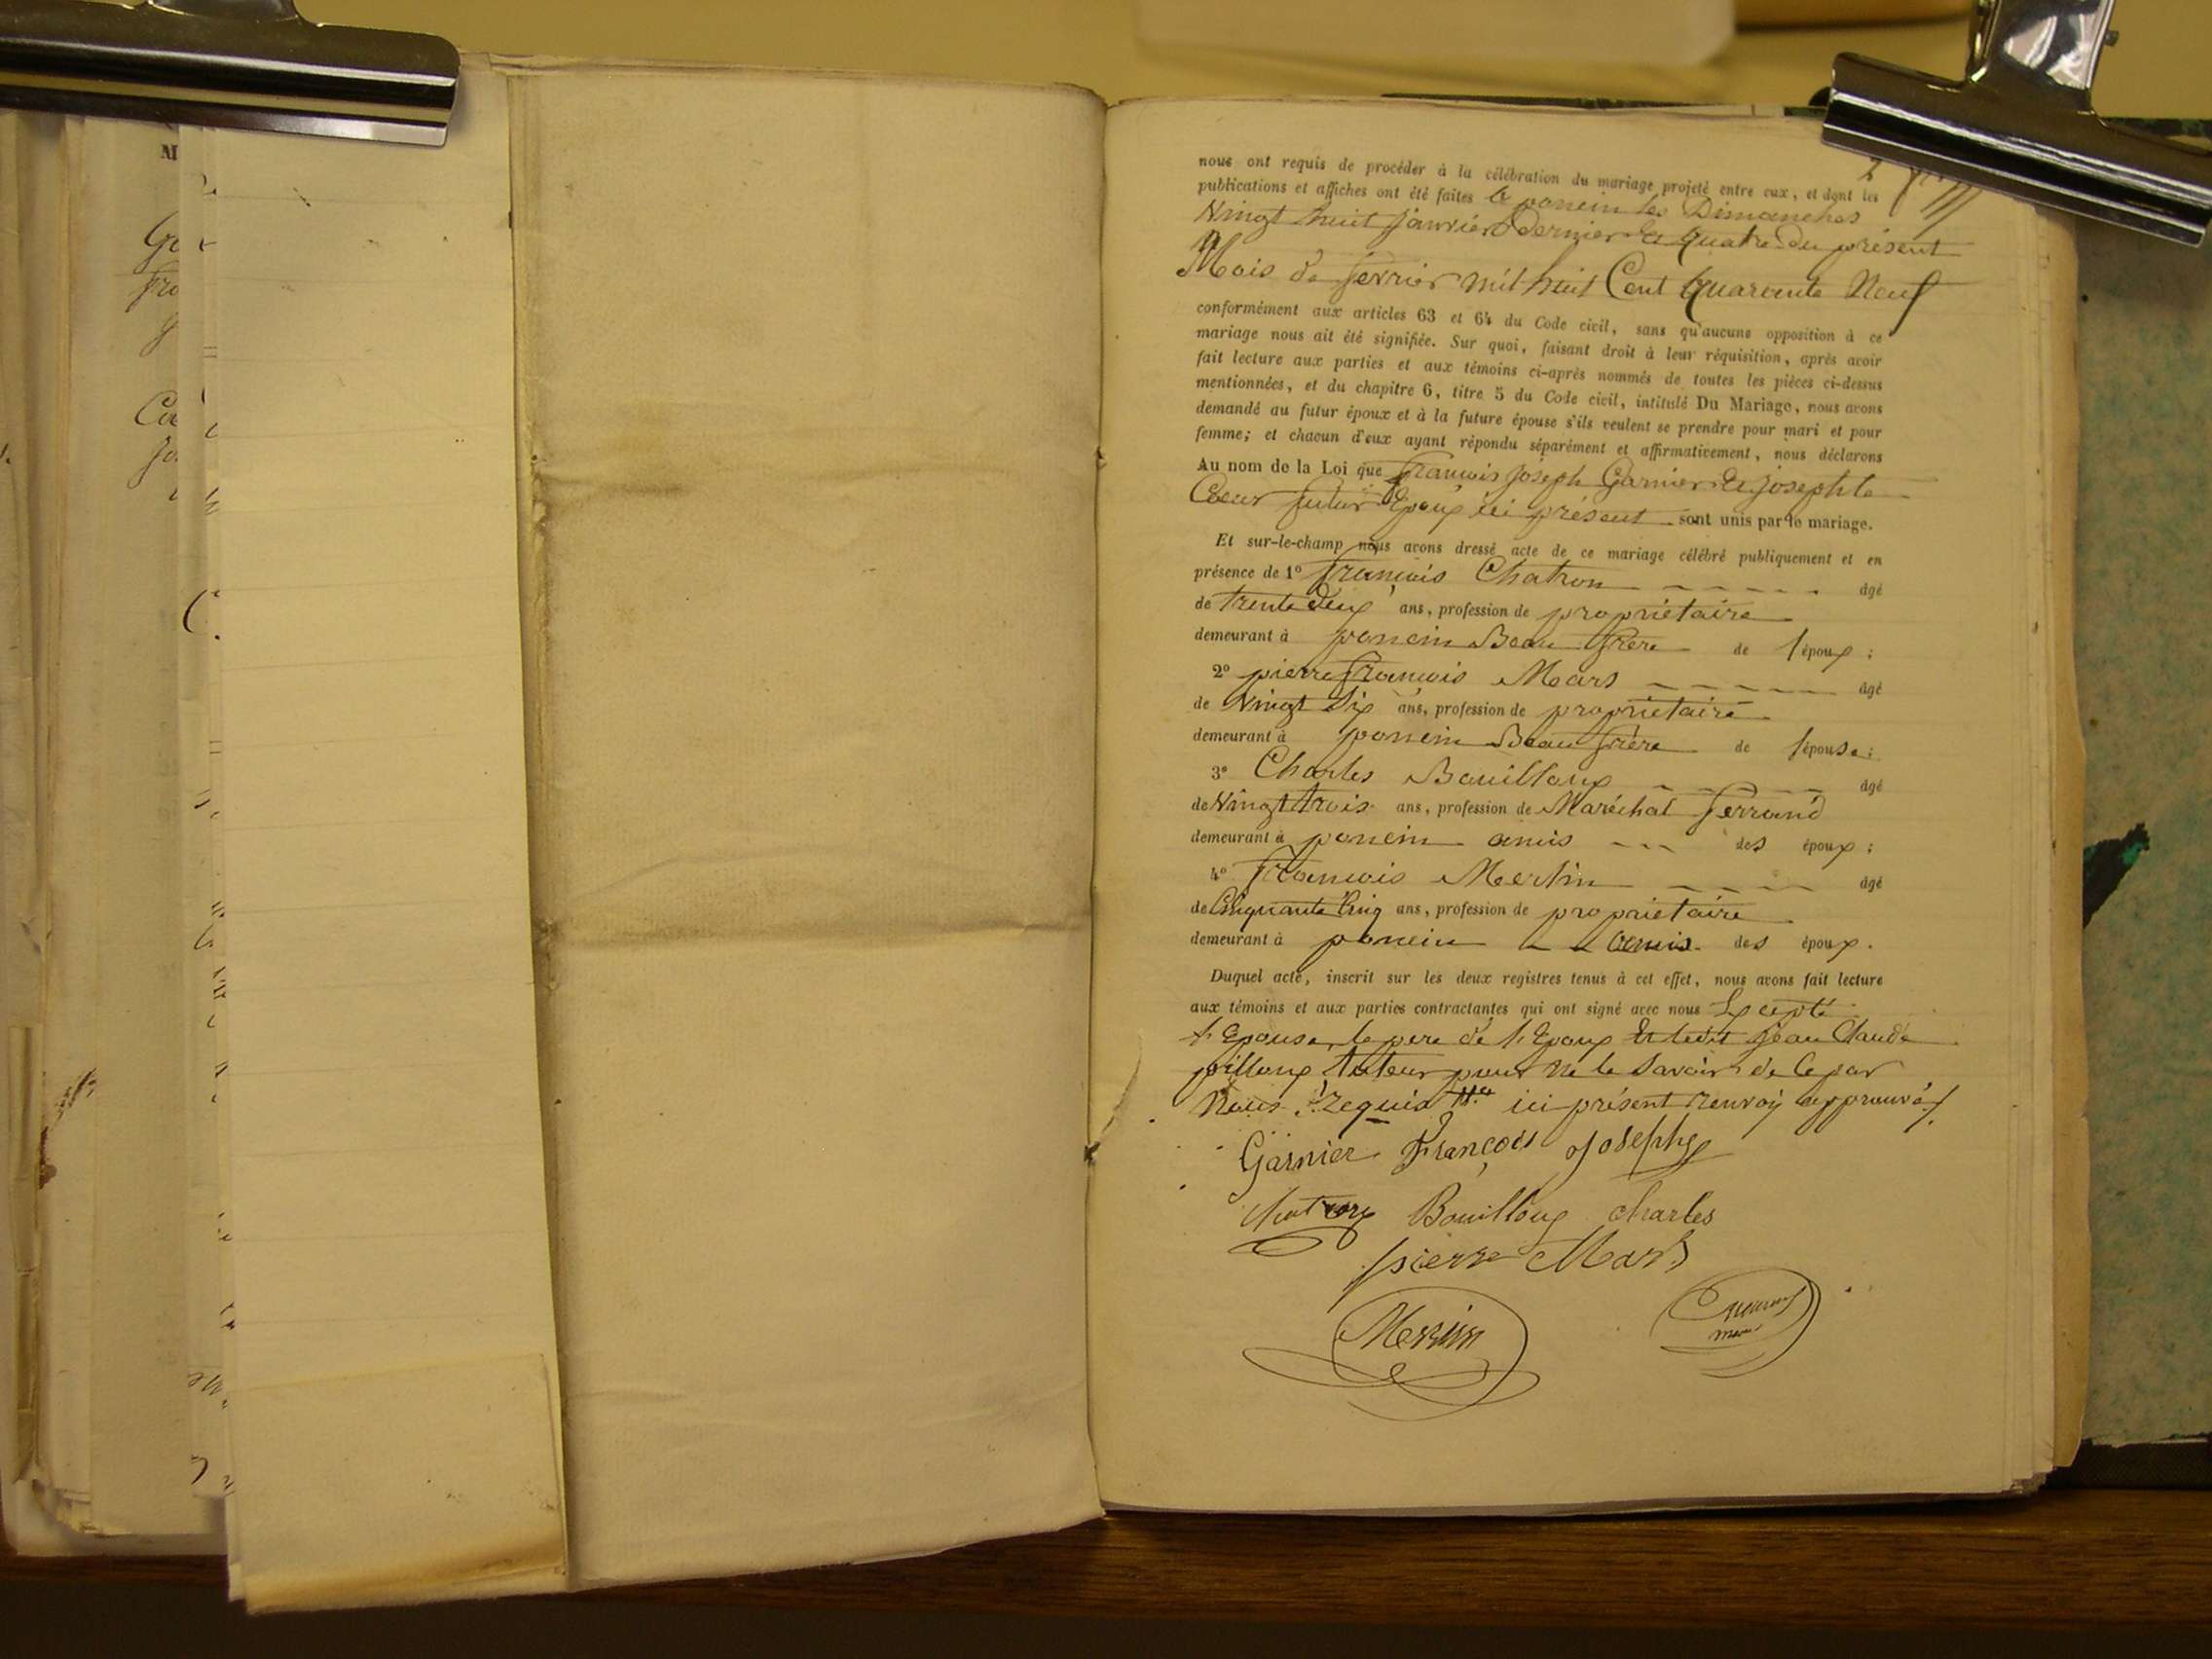 nous ont requis de procéder à la célébration du mariage projeté entre eux, et dont les
publications et affiches ont été faites à poncin les Dimanches
Vingt huit janvier dernier et quatre du présent
Mois de fevrier mil huit Cent Quarante Neuf
conformément aux articles 63 et 64 du Code civil, sans qu'aucune opposition à ce
mariage nous ait été signifiée. Sur quoi, faisant droit à leur réquisition, après avoir
fait lecture aux parties et aux témoins ci-après nommés de toutes les pièces ci-dessus
mentionnées, et du chapitre 6, titre 5 du Code civil, intitulé Du Mariage, nous avons
demandé au futur époux et à la future épouse s'ils veulent se prendre pour mari et pour
femme; et chacun d'eux ayant répondu séparément et affirmativement, nous déclarons
Au nom de la Loi que francois joseph Garnier Et josephte
futur Epoux ici présent sont unis par le mariage.
Et sur-le-champ nous avons dressé acte de ce mariage célébré publiquement et en
présence de 1º francois Chatron âgé
de trente deux ans, profession de propriétaire
demeurant à poncin Beau frere de l'époux ;
2º pierre francois Mars âgé
de Vingt Six ans, profession de propriétaire
demeurant à poncin Beau frère de l'épouse ;
3º Charles Bouilloux âgé
de Vingt trois ans, profession de Maréchal ferrand
demeurant à poncin amis des époux ;
4º francois Merlin âgé
de Cinquante Cinq ans, profession de propriétaire
demeurant à poncin amis des époux.
Duquel acte, inscrit sur les deux registres tenus à cet effet, nous avons fait lecture
aux témoins et aux parties contractantes qui ont signé avec nous Excepté
l'Epouse, le pere de l'Epoux Et ledit jean Claude
pilloux tuteur pour ne le Savoir de Ce par
Nous Requis ici présent renvoy approuvé
Garnier François Joseph
Chatron Bouilloux charles
pierre Mars
Merlin